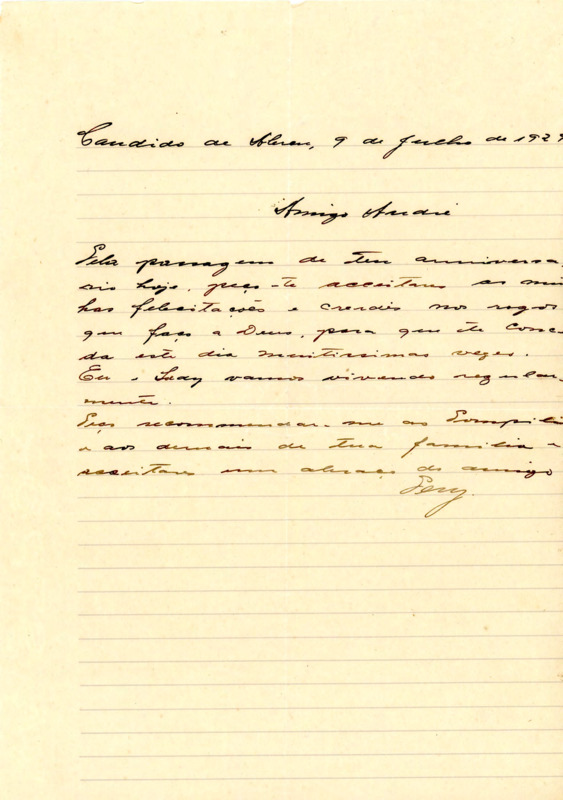 Candido de Abreu, 9 de Julho de 192
Amigo André
Pela passagem de teu anniversa
rio hoje, peço-te acceitares as mi
has felicitações e creráis nos rogos
que faço a Deus, para que te conc
da este dia muitissimas vezes.
Eu e Lady vamos vivendo regular
mente.
Peço recommendar-me ao Pompili
e aos demais de tua familia e
acceitares um abraço do amigo